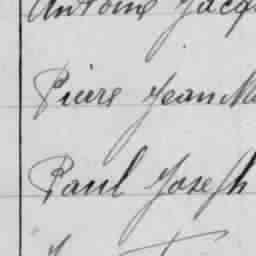 Antoine Jacq
Pierre Jean Ma
Paul Joseph